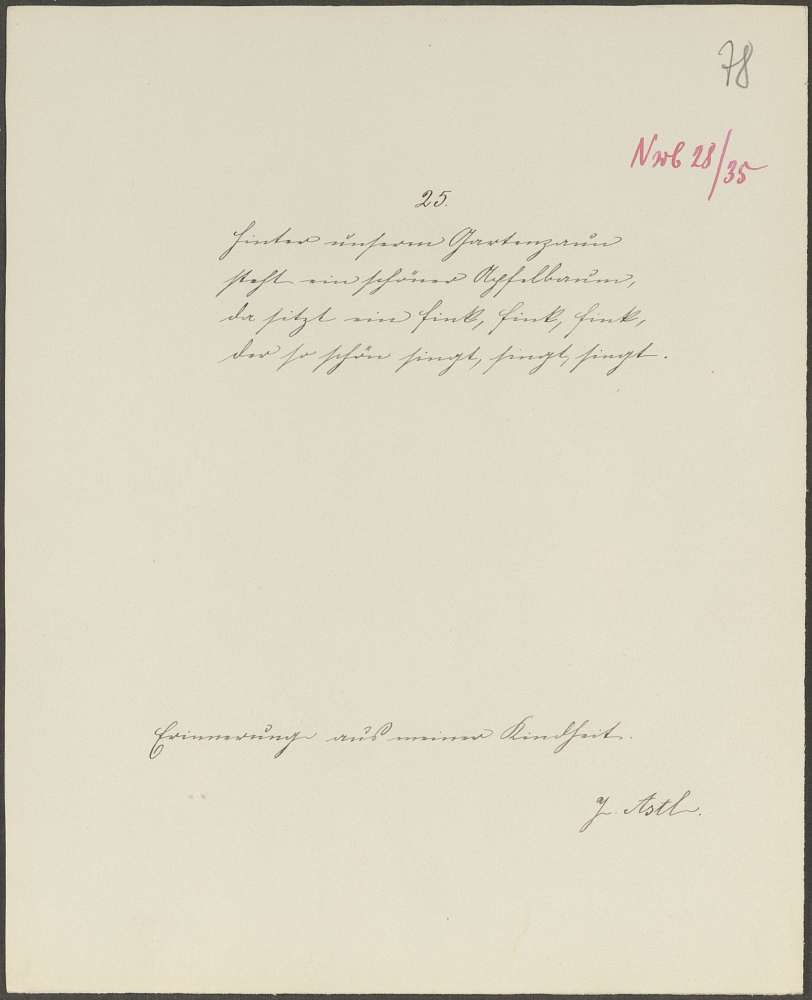 78
Nrb 28/35
25.
Hinter unserm Gartenzaun
steht ein schöner Apfelbaum,
da sitzt ein Fink, Fink, Fink,
der so schön singt, singt, singt.
Erinnerung aus meiner Kindheit.
J. Astl.